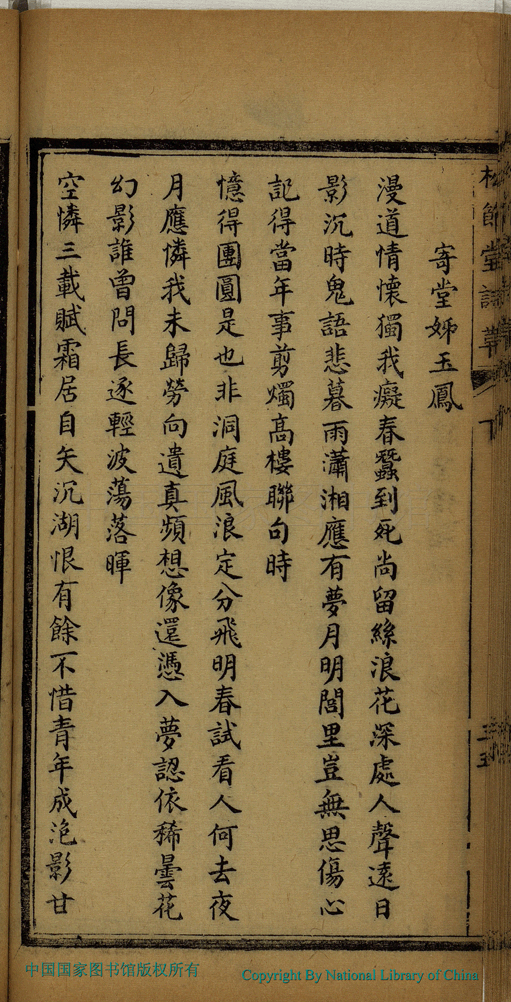 松節堂詩草 下
寄堂姊玉鳳
漫道情懷獨我癡春蠶到死尚留絲浪花深處人聲遠日
影沉時鬼語悲暮雨瀟湘應有夢月明閭里豈無思傷心
記得當年事剪燭高樓聯句時
憶得團圓是也非洞庭風浪定分飛明春試看人何去夜
月應憐我未歸勞向遺真頻想像還憑入夢認依稀曇花
幻影誰曾問長逐輕波蕩落暉
空憐三載賦霜居自矢沉湖恨有餘不惜青年成泡影甘
中国国家图书馆版权所有
Copyright By National Library of China